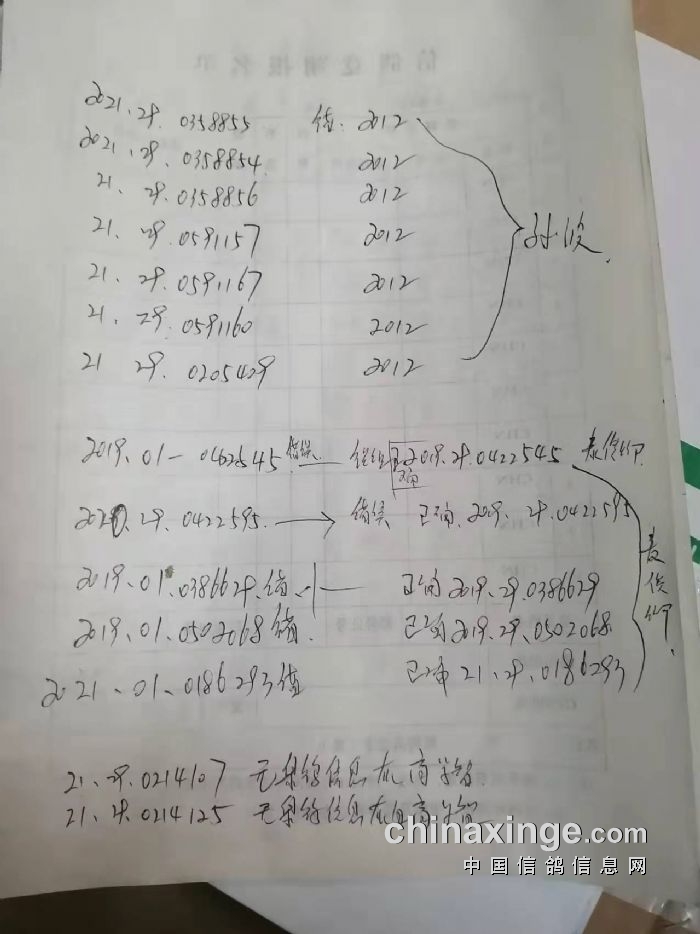 信鸽定期报名单
2021.29.0358855 错:2012
2021.29.0358854. 2012
21.29.0358856 2012
21.29.0591157 2012
21.29.0591167 2012
21.29.0591160 2012
21 29.0205429 2012
孙波.
2019.01-0422545 错误 2019.29.0422545
2020.29.0422595. → 错误 已询.2019.29.0422595
2019.01.0386629.错. 已询2019.29.0386629
2019.01.0502068错. 已询2019.29.0502068.
2021.01.0186293错 已询 21.29.0186293
21.29.0214107 无集鸽信息在
21.29.0214125 无集鸽信息在
chinaxinge.com
中国信鸽信息网